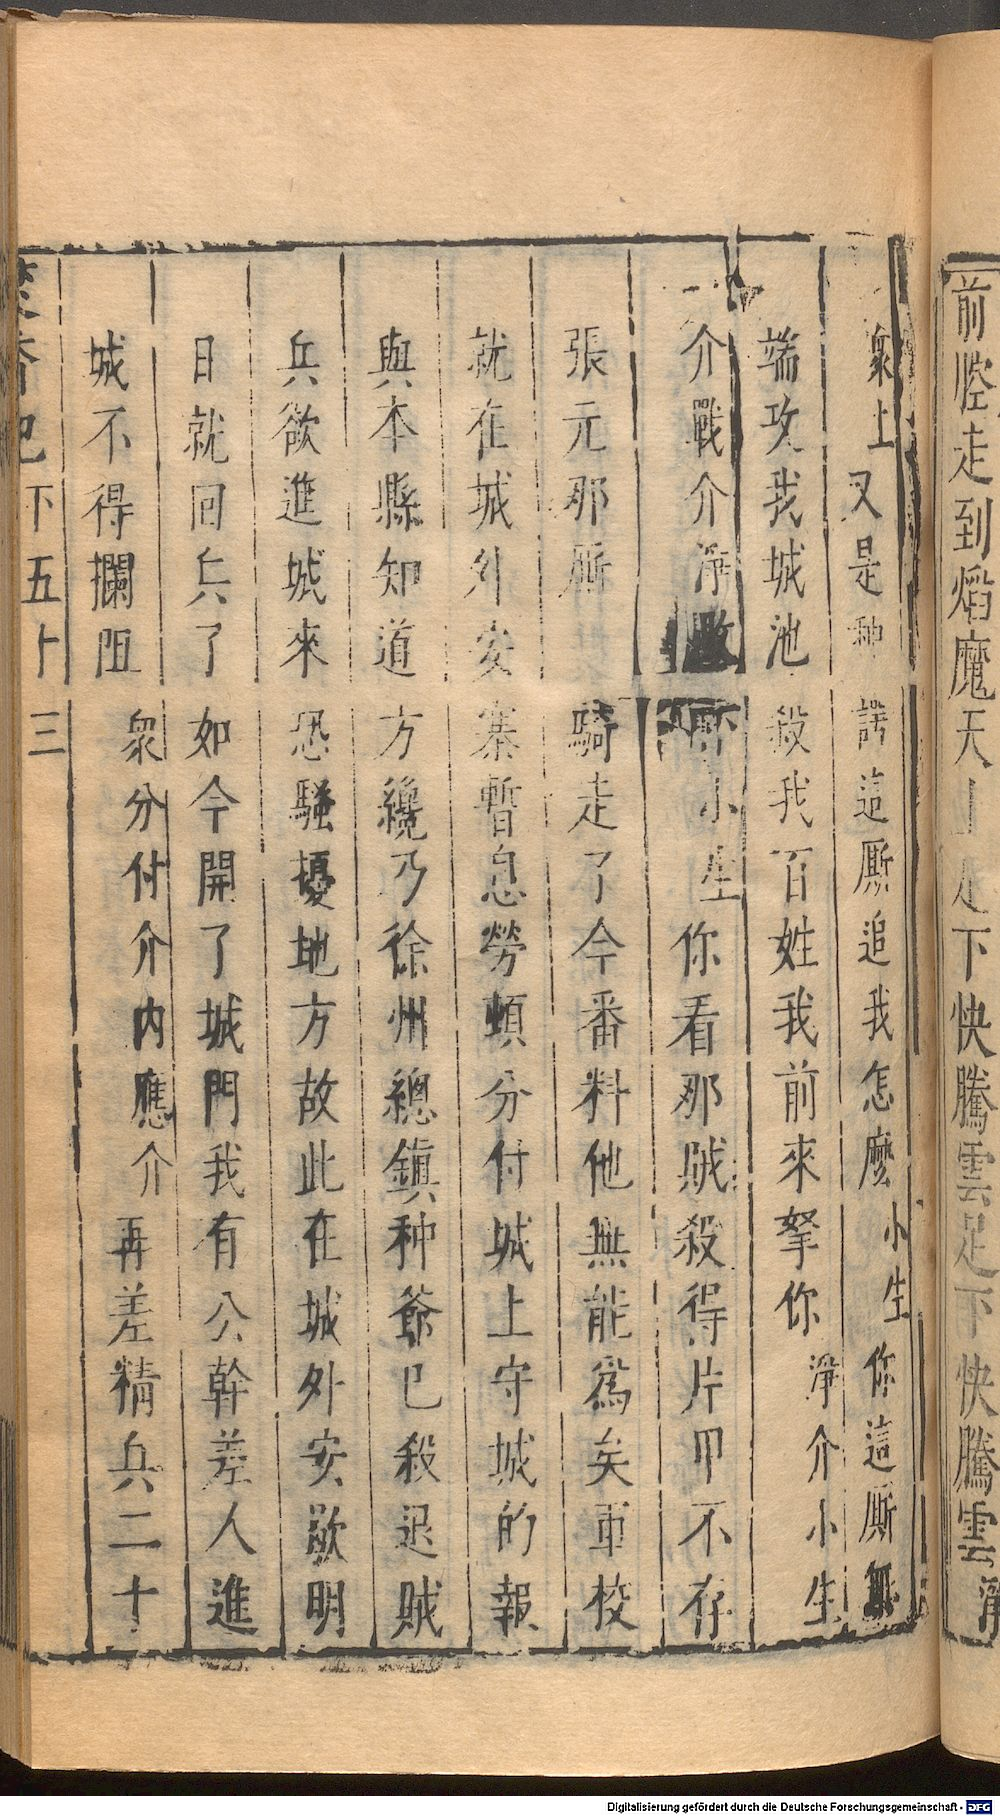 前腔走到焰魔天上足下快騰雲足下快騰雲淨
衆上又是种諤這厮追我怎麽小生你這厮無
端攻我城池殺我百姓我前來拏你淨介小生
介戰介淨敗介小生你看那賊殺得片甲不存
張元那厮騎走了今番料他無能爲矣軍校
就在城外安寨暫息勞頓分付城上守城的報
與本縣知道方纔乃徐州總鎮种爺已殺退賊
兵欲進城來恐騷擾地方故此在城外安歇明
日就回兵了如今開了城門我有公幹差人進
城不得攔阻衆分付介內應介再差精兵二十
焚香記下五十三
Digitalisierung gefördert durch die Deutsche Forschungsgemeinschaft - DFG